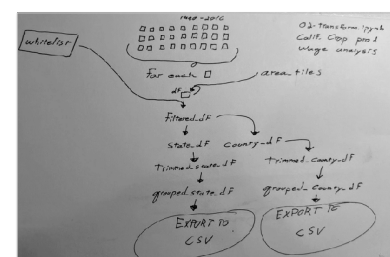 1990-2016
02-transform.ipynb
Calif. Crop prod
Wage analysis
whitelist
For each
area_titles
df
filtered_df
state_df
county_df
trimmed_state_df
trimmed_county_df
grouped_state_df
grouped_county_df
EXPORT TO
CSV
EXPORT TO
CSV